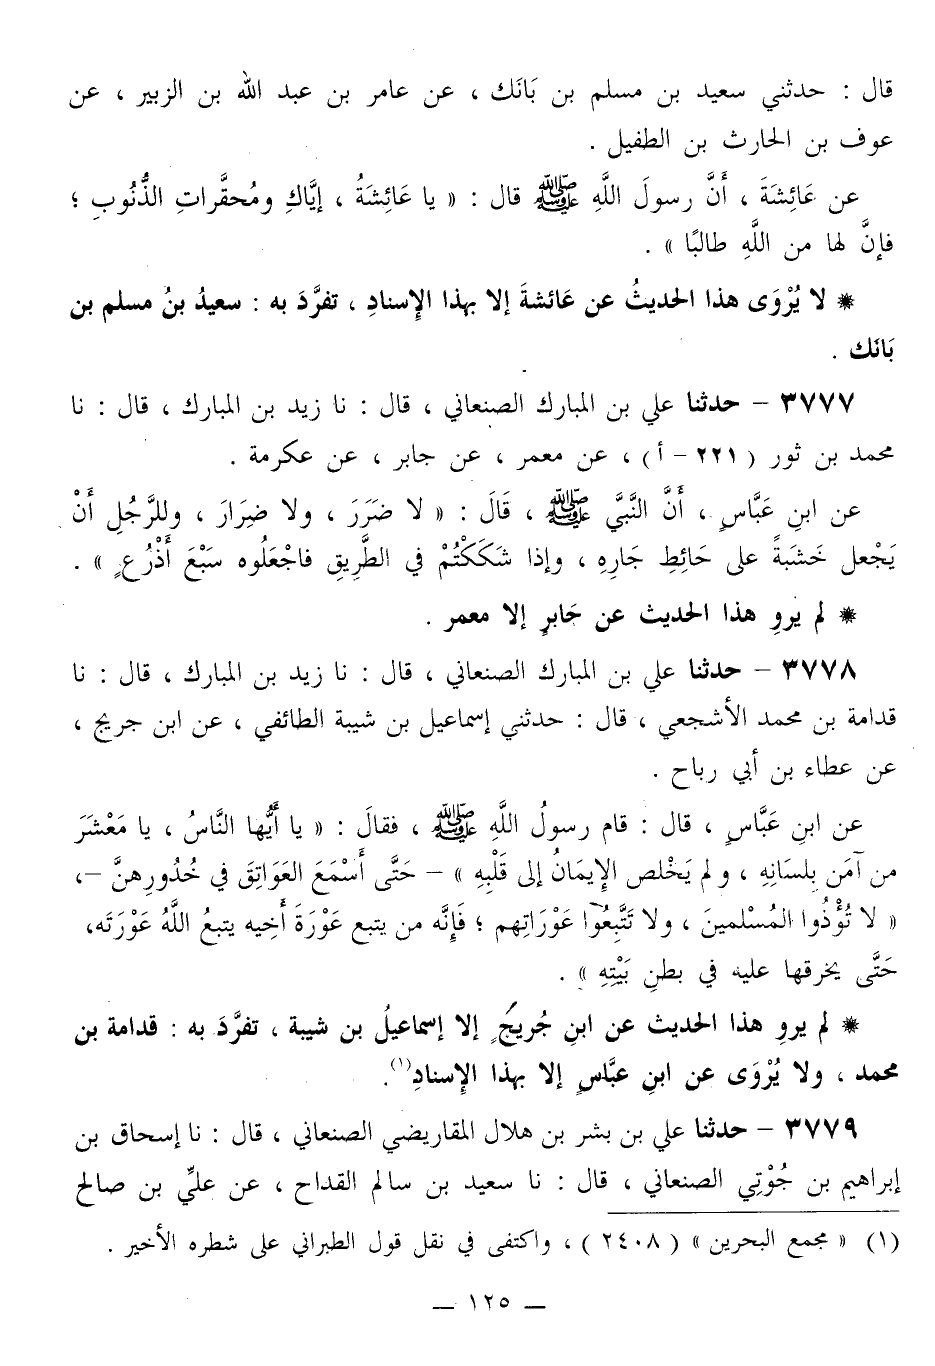 قال : حدثني سعيد بن مسلم بن بَانَك ، عن عامر بن عبد الله بن الزبير ، عن
عوف بن الحارث بن الطفيل .
عن عَائِشَةَ ، أَنَّ رسولَ اللَّهِ ﷺ قال : « يا عَائِشَةُ ، إيَّاكِ ومُحقَّراتِ الذُّنُوبِ ؛
فإنَّ لها من اللَّهِ طالبًا » .
* لا يُرْوَى هذا الحديثُ عن عَائشةَ إلا بهذا الإِسنادِ ، تفرَّدَ به : سعيدُ بنُ مسلم بن
بَانَك .
٣٧٧٧ - حدثنا علي بن المبارك الصنعاني ، قال : نا زيد بن المبارك ، قال : نا
محمد بن ثور ( ٢٢١ - أ ) ، عن معمر ، عن جابر ، عن عكرمة .
عن ابنِ عَبَّاسٍ ، أَنَّ النَّبيَّ ﷺ ، قَالَ : « لا ضَرَرَ ، ولا ضِرَارَ ، وللرَّجُلِ أَنْ
يَجْعل خَشبَةً على حَائِطِ جَارِهِ ، وإذا شَكَكْتُمْ في الطَّرِيقِ فاجْعَلُوه سَبْعَ أَذْرُعٍ » .
* لم يروِ هذا الحديث عن جَابرٍ إلا معمر .
٣٧٧٨ - حدثنا علي بن المبارك الصنعاني ، قال : نا زيد بن المبارك ، قال : نا
قدامة بن محمد الأشجعي ، قال : حدثني إسماعيل بن شيبة الطائفي ، عن ابن جريج ،
عن عطاء بن أبي رباح .
عن ابنِ عَبَّاسٍ ، قال : قام رسولُ اللَّهِ ﷺ ، فقالَ : « يا أَيُّها النَّاسُ ، يا مَعْشَرَ
من آمَن بِلسَانِهِ ، ولم يَخْلص الإِيمَانُ إلى قَلْبِهِ » - حَتَّى أَسْمَعَ العَوَاتِقَ في خُدُورِهنَّ -،
« لا تُؤْذُوا المُسْلمينَ ، ولا تَتَّبِعُوا عَوْرَاتِهم ؛ فَإِنَّه من يتبع عَوْرَةَ أَخيه يتبعُ اللَّهُ عَوْرَتَه،
حَتَّى يخرقها عليه في بطنِ بَيْتِهِ » .
* لم يروِ هذا الحديث عن ابنِ جُريجٍ إلا إسماعيلُ بن شيبة ، تفرَّدَ به : قدامة بن
محمد ، ولا يُرْوَى عن ابنِ عبَّاسٍ إلا بهذا الإسنادِ(١).
٣٧٧٩ - حدثنا علي بن بشر بن هلال المقاريضي الصنعاني ، قال : نا إسحاق بن
إبراهيم بن جُوْتِي الصنعاني ، قال : نا سعيد بن سالم القداح ، عن عليِّ بن صالح
(١) « مجمع البحرين » ( ٢٤٠٨ ) ، واكتفى في نقل قول الطبراني على شطره الأخير .
_ ١٢٥ _